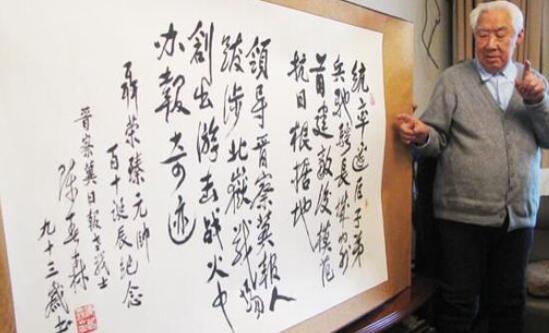 统率子弟
兵驰骋長城内外
首建敌后模范
抗日根据地
領导晋察冀报人
跋涉北嶽战場
創出游击战火中
办报奇迹
聶荣臻元帥
百十诞辰纪念
晋察冀日报老战士
陈春森
九十三歲书